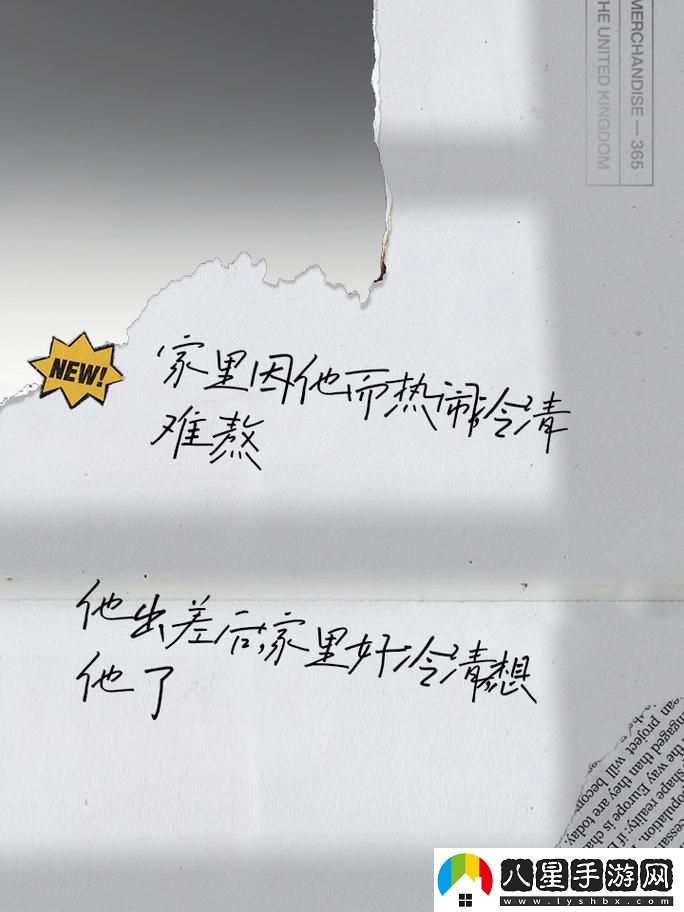 MERCHANDISE — 365
THE UNITED KINGDOM
NEW!
家里因他而热闹,冷清
难熬
他出差后,家里好冷清,想
他了
engaged than they are today.
an project will becom
the way Europe is cha
shape reality; if
opulation.
cessar
八星手游网
www.lyshbx.com